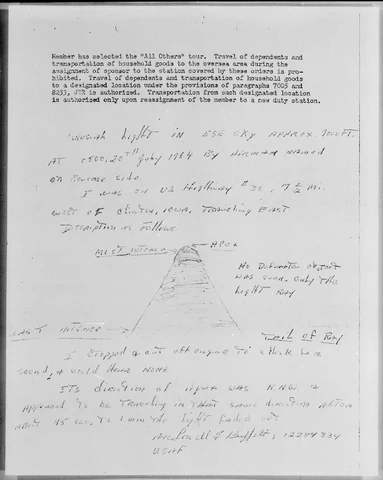 Member has selected the "All Others" tour. Travel of dependents and
transportation of household goods to the oversea area during the
assignment of sponsor to the station covered by these orders is pro-
hibited. Travel of dependents and transportation of household goods
to a designated location under the provisions of paragraphs 7005 and
8253, JTR is authorized. Transportation from such designated location
is authorized only upon reassignment of the member to a new duty station.
Light in ESE Sky Approx. 
At 0500, 20TH July 1964 By Airman Named
on Reverse side
I was on US Highway #30, 7 1/2 m.
west of Clinton, Iowa, Traveling East
Discription as follows
Most intence
Apex
No Definate object
was seen. Only the
Light Ray
Least intence
Trail of Ray
I stopped & cut off engine to check for
sound, & could Hear None
ITS direction of was N.NW &
Appeared To be Traveling in That same direction After
about 45 sec. to 1 min The Light faded out
12284834
USAF